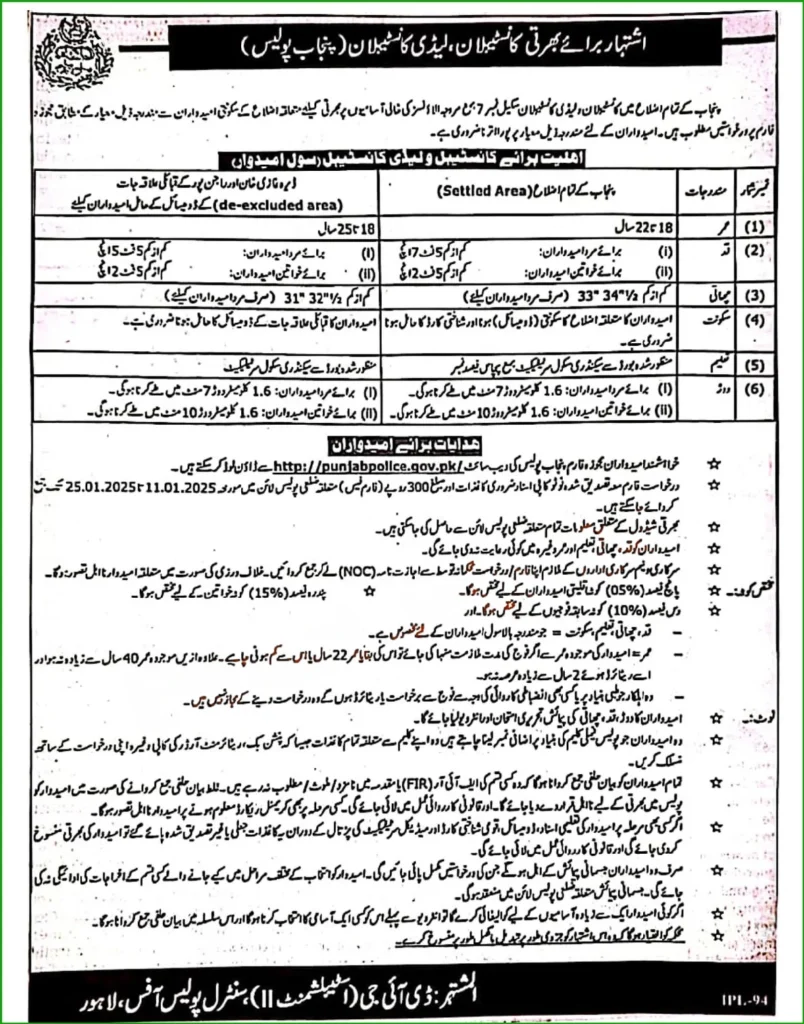 اشتہار برائے بھرتی کانسٹیبلان، لیڈی کانسٹیبلان (پنجاب پولیس)
پنجاب کے تمام اضلاع میں کانسٹیبلان و لیڈی کانسٹیبلان سکیل نمبر 7 بمع مروجہ الاؤنسز کی خالی آسامیوں پر بھرتی کیلئے متعلقہ اضلاع کے سکونتی امیدواران سے مندرجہ ذیل معیار کے مطابق مجوزہ
فارم پر درخواستیں مطلوب ہیں۔ امیدواران کے لئے مندرجہ ذیل معیار پر پورا اترنا ضروری ہے۔
اہلیت برائے کانسٹیبل و لیڈی کانسٹیبل (سول امیدوار)
نمبر شمار مندرجات پنجاب کے تمام اضلاع (Settled Area) ڈیرہ غازی خان اور راجن پور کے قبائلی علاقہ جات
(de-excluded area) کے ڈومیسائل کے حامل امیدواران کیلئے
(1) عمر 18 تا 22 سال 18 تا 25 سال
(2) قد (i) برائے مرد امیدواران: کم از کم 5 فٹ 7 انچ (i) برائے مرد امیدواران: کم از کم 5 فٹ 5 انچ
(ii) برائے خواتین امیدواران: کم از کم 5 فٹ 2 انچ (ii) برائے خواتین امیدواران: کم از کم 5 فٹ 2 انچ
(3) چھاتی کم از کم 33" 34½" (صرف مرد امیدواران کیلئے) کم از کم 31" 32½" (صرف مرد امیدواران کیلئے)
(4) سکونت امیدواران کا متعلقہ اضلاع کا سکونتی (ڈومیسائل) ہونا اور شناختی کارڈ کا حامل ہونا امیدواران کا قبائلی علاقہ جات کے ڈومیسائل کا حامل ہونا ضروری ہے۔
ضروری ہے۔
(5) تعلیم منظور شدہ بورڈ سے سیکنڈری سکول سرٹیفکیٹ بمع پچاس فیصد نمبر منظور شدہ بورڈ سے سیکنڈری سکول سرٹیفکیٹ
(6) دوڑ (i) برائے مرد امیدواران: 1.6 کلومیٹر دوڑ 7 منٹ میں طے کرنا ہوگی۔ (i) برائے مرد امیدواران: 1.6 کلومیٹر دوڑ 7 منٹ میں طے کرنا ہوگی۔
(ii) برائے خواتین امیدواران: 1.6 کلومیٹر دوڑ 10 منٹ میں طے کرنا ہوگی۔ (ii) برائے خواتین امیدواران: 1.6 کلومیٹر دوڑ 10 منٹ میں طے کرنا ہوگی۔
ہدایات برائے امیدواران
☆ خواہشمند امیدواران مجوزہ فارم پنجاب پولیس کی ویب سائٹ http://punjabpolice.gov.pk/ سے ڈاؤن لوڈ کر سکتے ہیں۔
☆ درخواست فارم معہ تصدیق شدہ فوٹو کاپی اسناد ضروری کاغذات اور مبلغ 300 روپے (فارم فیس) متعلقہ ضلعی پولیس لائن میں مورخہ 11.01.2025 تا 25.01.2025 تک جمع
کروائے جاسکتے ہیں۔
☆ بھرتی شیڈول کے متعلق معلومات تمام متعلقہ ضلعی پولیس لائن سے حاصل کی جاسکتی ہیں۔
☆ امیدواران کو قد، چھاتی، تعلیم اور عمر وغیرہ میں کوئی رعایت نہ دی جائے گی۔
☆ سرکاری و نیم سرکاری اداروں کے ملازم اپنا فارم/درخواست محکمانہ توسط سے اجازت نامہ (NOC) لے کر جمع کروائیں۔ خلاف ورزی کی صورت میں متعلقہ امیدوار نااہل تصور ہوگا۔
مختص کوٹہ:۔ ☆ پانچ فیصد (05%) کوٹہ اقلیتی امیدواران کے لیے مختص ہوگا۔ ☆ پندرہ فیصد (15%) کوٹہ خواتین کے لیے مختص ہوگا۔
☆ دس فیصد (10%) کوٹہ سابقہ فوجیوں کے لیے مختص ہوگا۔ اور
– قد، چھاتی، تعلیم، سکونت = جو مندرجہ بالا سول امیدواران کے لئے مخصوص ہے۔
– عمر = امیدوار کی موجودہ عمر سے اگر فوج کی مدت ملازمت منہا کی جائے تو اس کی بقایا عمر 22 سال یا اس سے کم ہونی چاہیے۔ علاوہ ازیں موجودہ عمر 40 سال سے زیادہ نہ ہو اور
اسے ریٹائرڈ ہوئے 2 سال سے زیادہ عرصہ نہ ہو۔
– وہ اہلکار جو طبی بنیاد پر یا کسی بھی انضباطی کارروائی کی وجہ سے فوج سے برخاست یا ریٹائرڈ ہوں گے وہ درخواست دینے کے مجاز نہیں ہیں۔
نوٹ:۔ ☆ امیدواران کا دوڑ، قد، چھاتی کی پیمائش، تحریری امتحان اور انٹرویو لیا جائے گا۔
☆ وہ امیدواران جو پولیس فیملی کلیم کی بنیاد پر اضافی نمبر لینا چاہتے ہیں وہ اپنے کلیم سے متعلقہ تمام کاغذات جیسا کہ پنشن بک، ریٹائرمنٹ آرڈر کی کاپی وغیرہ اپنی درخواست کے ساتھ
منسلک کریں۔
☆ تمام امیدواران کو بیان حلفی جمع کروانا ہوگا کہ وہ کسی قسم کی ایف آئی آر (FIR) یا مقدمہ میں نامزد/ملوث/مطلوب نہ رہے ہیں۔ غلط بیان حلفی جمع کروانے کی صورت میں امیدوار کو
پولیس میں بھرتی کے لیے نااہل قرار دے دیا جائے گا۔ اور قانونی کارروائی عمل میں لائی جائے گی کسی مرحلہ پر بھی کریمنل ریکارڈ معلوم ہونے پر امیدوار نااہل تصور ہوگا۔
☆ اگر کسی بھی مرحلہ پر امیدوار کی تعلیمی اسناد، ڈومیسائل، قومی شناختی کارڈ اور میڈیکل سرٹیفکیٹ کی پڑتال کے دوران یہ کاغذات جعلی یا غیر تصدیق شدہ پائے گئے تو امیدوار کی بھرتی منسوخ
کردی جائے گی اور قانونی کارروائی عمل میں لائی جائے گی۔
☆ صرف وہ امیدواران جسمانی پیمائش کے اہل ہوگے جن کی درخواستیں مکمل پائی جائیں گی۔ امیدوار کو انتخاب کے مختلف مراحل میں کیے جانے والے کسی قسم کے اخراجات کی ادائیگی نہ کی
جائے گی۔ جسمانی پیمائش متعلقہ ضلعی پولیس لائن میں منعقد ہوگی۔
☆ اگر کوئی امیدوار ایک سے زیادہ آسامیوں کے لیے کوالیفائی کرے گا تو انٹرویو سے پہلے اس کو کسی ایک آسامی کا انتخاب کرنا ہوگا اور اس سلسلہ میں بیان حلفی جمع کروانا ہوگا۔
☆ محکمہ کو اختیار ہوگا کہ وہ اس اشتہار کو جزوی طور پر تبدیل یا مکمل طور پر منسوخ کرے۔
المشتہر: ڈی آئی جی (اسٹیبلشمنٹ II)، سنٹرل پولیس آفس، لاہور
IPL-94